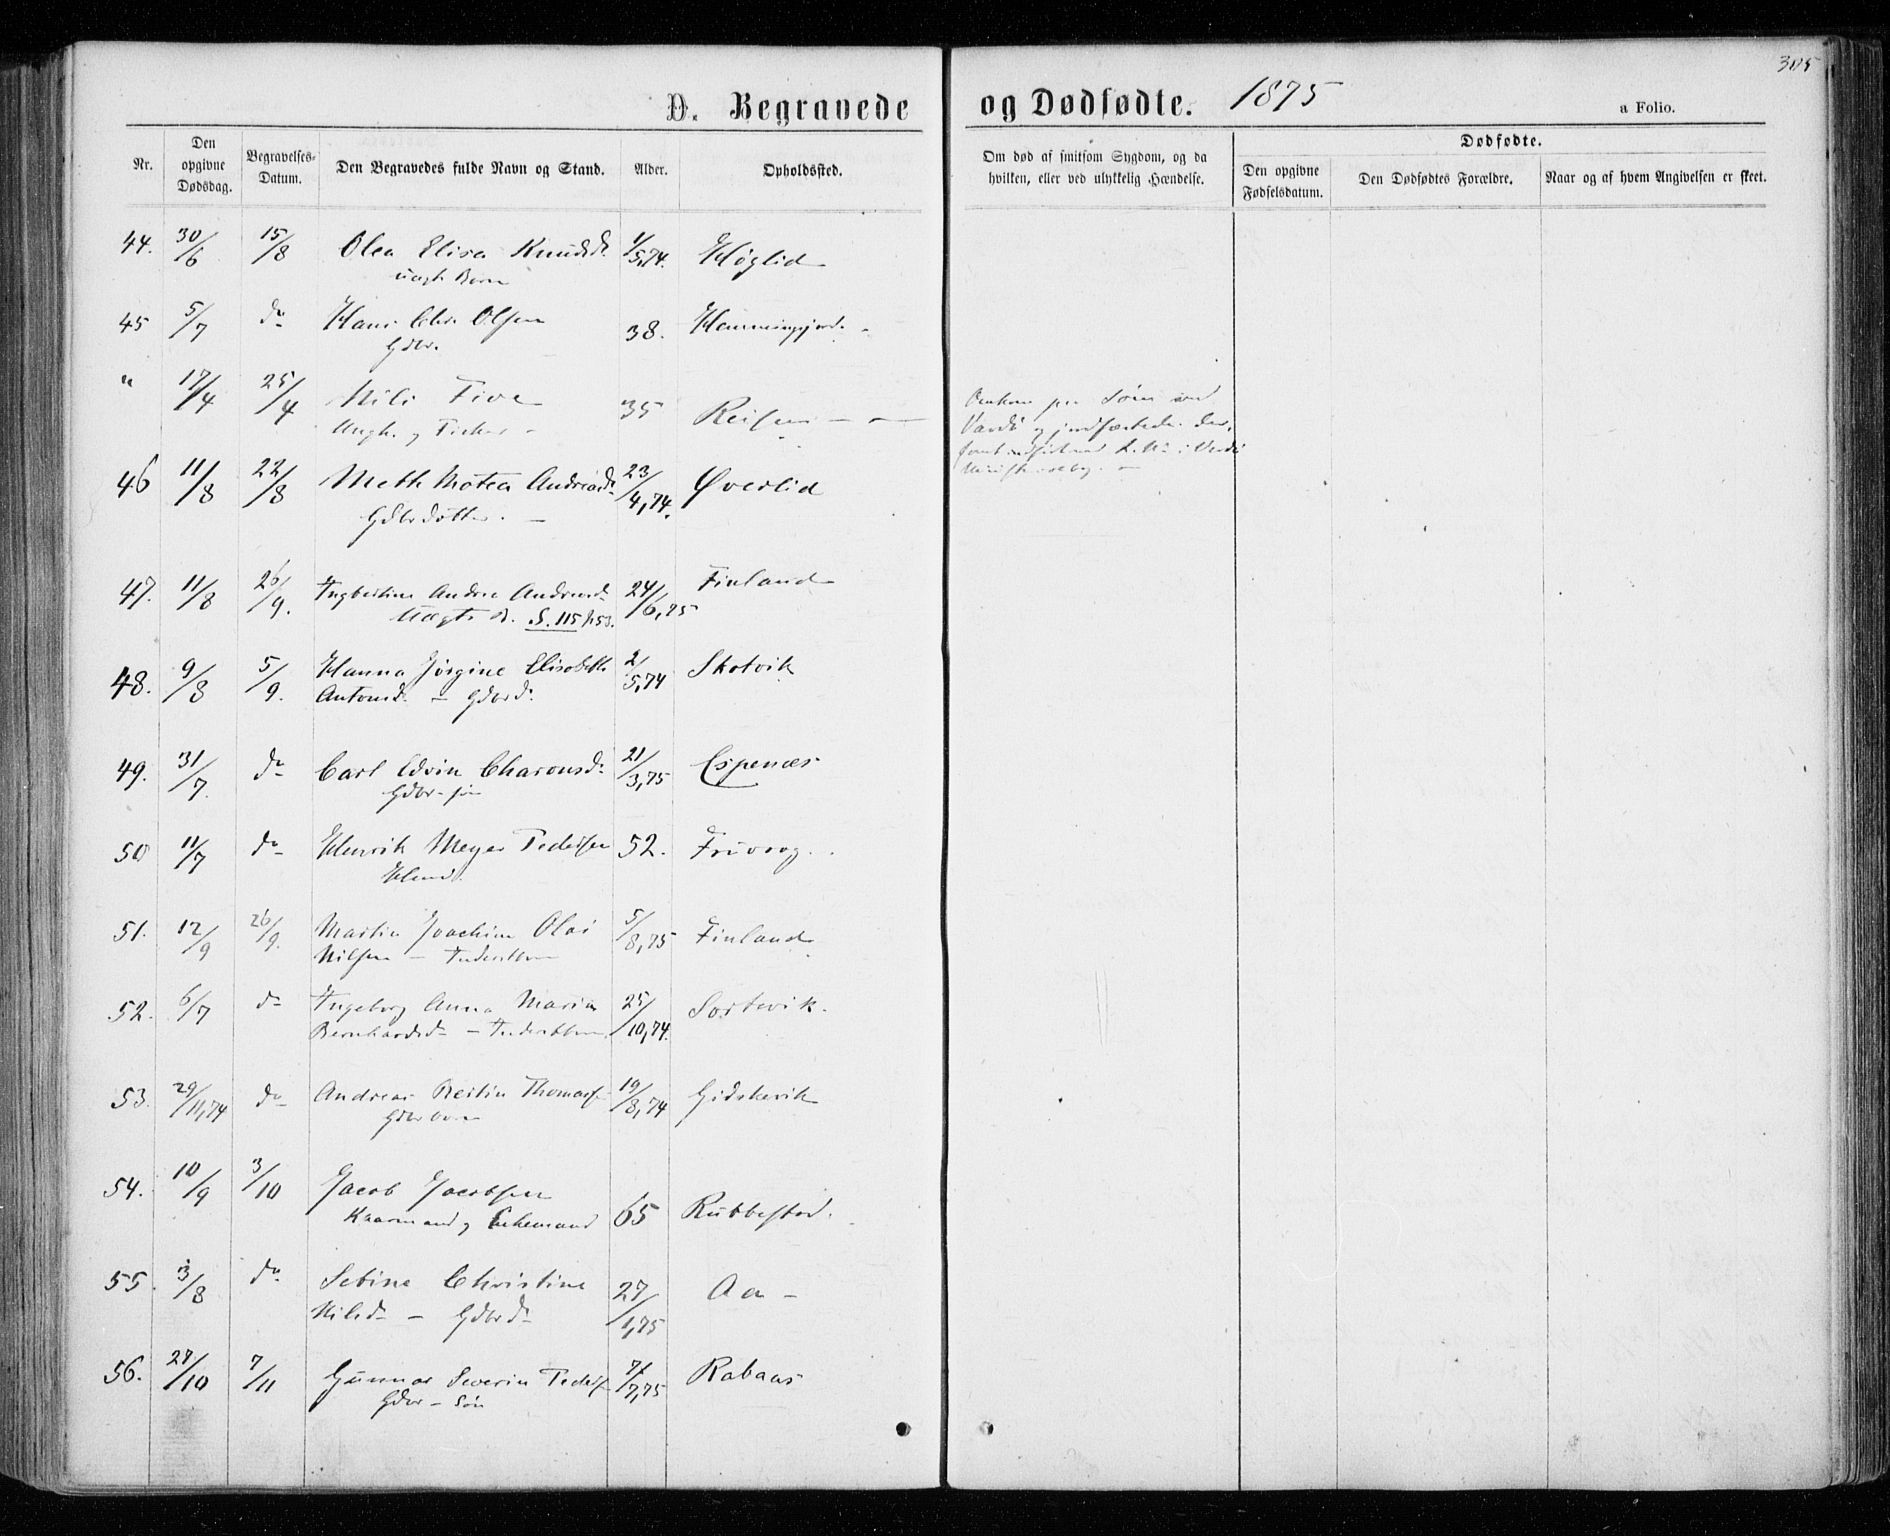 305
D. Begravede og Dødfødte. 1875
a Folio.
Nr.
Den opgivne Dødsdag.
Begravelses-Datum.
Den Begravedes fulde Navn og Stand.
Alder.
Opholdssted.
Om død af smitsom Sygdom, og da hvilken, eller ved ulykkelig Hændelse.
Dødfødte.
Den opgivne Fødselsdatum.
Den Dødfødtes Forældre.
Naar og af hvem Angivelsen er skeet.
44. 30/6 15/8 Olea Elisa Knudsd. 1/5,74. Høglid
uægt. Barn
45 5/7 do Hans Chr. Olsen 38. Hemmingsjord.
Gdbr.
" 17/4 25/4 Nils Five 35 Reisen
Ungk. og Fisker
Omkom paa Søen ved
Vardø og
46 11/8 22/8 Meth Motea Andreasd. 23/4,74. Øverlid
Gdbr datter.
47. 11/8 26/9. Ingbertine Andrea Andreasd. 24/6,75 Finland
Uægte B. S. 115 N 53.
48. 9/8 5/9. Hanna Jørgine Elisabeth 2/5,74 Skotvik
Antonsd. - Gdbr d.
49. 31/7. do Carl Edvin Charonsd. 21/3,75 Espenæs
Gdbr - søn
50 11/7 do Henrik Meyer Pedersen 52. Frovaag.
51. 12/9 26/9. Martin Joachim Olai 5/8,75 Finland
Nilsen - Inderstbarn
52. 6/7 do Ingeborg Anna Maria 25/10,74. Sortevik.
Bernhardsd. - Inderstbarn
53. 29/11,74 do Andreas Bertin Thomass. 19/8,74 Gidskevik
Gdbr barn
54. 10/9 3/10 Jacob Jacobsen 65 Rubbestad.
Kaarmand og Enkemand
55. 3/8 do Sebine Christine 27/1,75 Aa -
Nilsd. - Gdbr d.
56. 27/10 7/11 Gunnar Severin Peders. 7/7,75 Rabaas
Gdbr - Søn